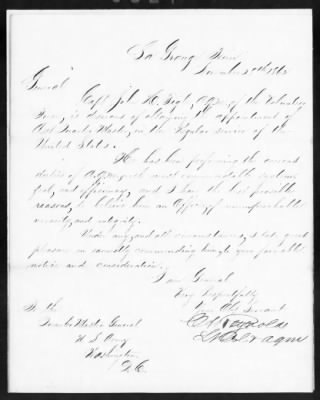 La Grange Tenn
November 29th 1862
General
Capt. Jno. H. A.Q.M. of the Volunteer
force, is desirous of obtaining the appointment of
Asst. Quarter Master, in the Regular service of the
United States.
He has been performing the current
duties of A.Q.M. with most commendable
and efficiency, and I have the best possible
reasons, to believe him an Officer of unimpeachable
and integrity.
Under any and all circumstances, I take great
pleasure in earnestly commending him to your favorable
notice and consideration.
I am General
Very Respectfully
Your Obt Servant
C A Reynolds
Lt Col & aqm
To the
Quarter Master General
U S Army
Washington
D.C.